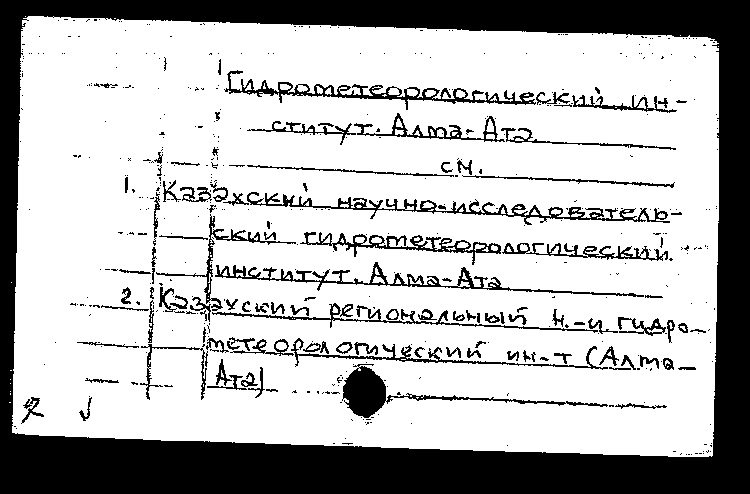 Гидрометеорологический ин-
ститут. Алма-Ата
см.
1. Казахский научно-исследователь-
ский гидрометеорологический
институт. Алма-Ата
2. Казахский региональный н.-и. гидро-
метеорологический ин-т (Алма-
Ата)